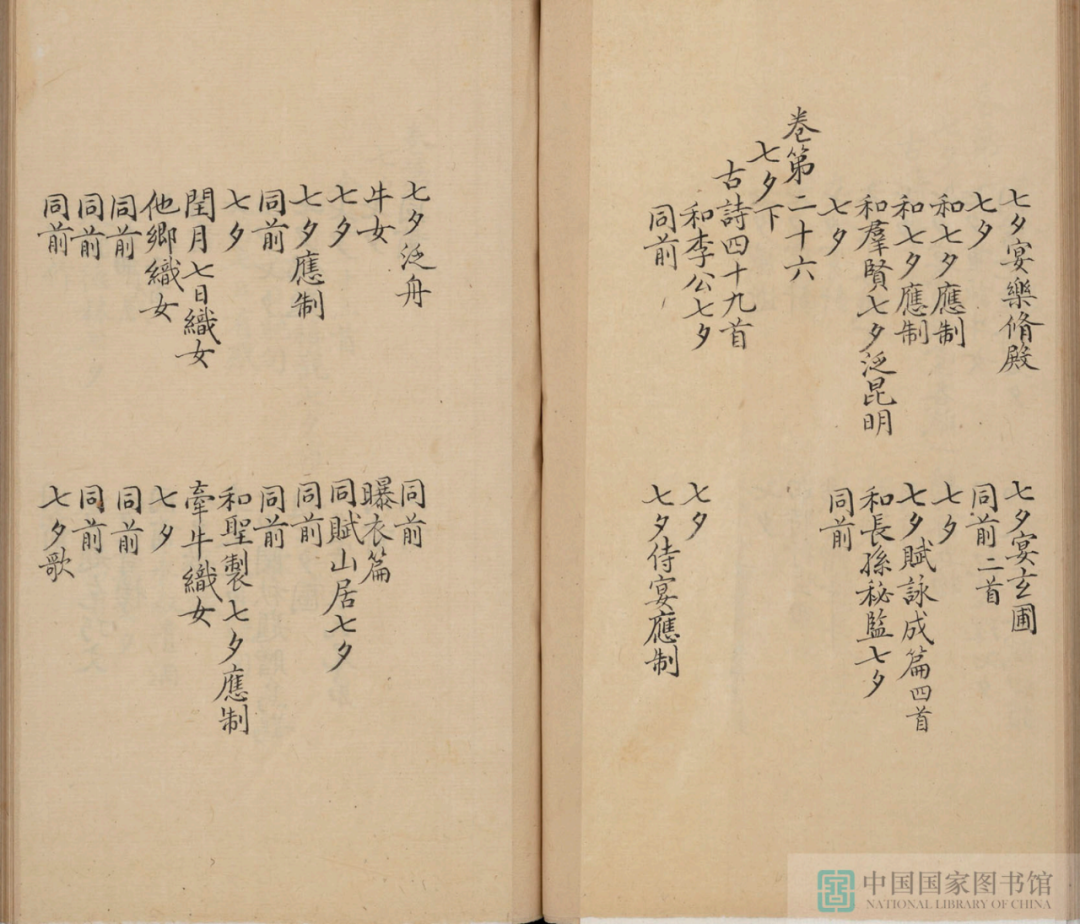 七夕宴樂脩殿 七夕宴玄圃
七夕 同前二首
和七夕應制 七夕
和七夕應制 七夕賦詠成篇四首
和羣賢七夕泛昆明 和長孫秘監七夕
七夕 同前
卷第二十六
七夕下
古詩四十九首
和李公七夕 七夕
同前 七夕侍宴應制
七夕泛舟 同前
牛女 曝衣篇
七夕 同賦山居七夕
七夕應制 同前
同前 同前
七夕 和聖製七夕應制
閏月七日織女 牽牛織女
他鄉織女 七夕
同前 同前
同前 同前
同前 七夕歌
中国国家图书馆
NATIONAL LIBRARY OF CHINA